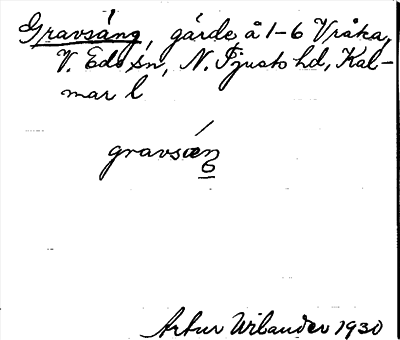 Gravsäng, gärde å 1-6 Vråka,
V. Eds sn, N. Tjusts hd, Kal-
mar l
gravsæŋ
Artur Wilander 1930